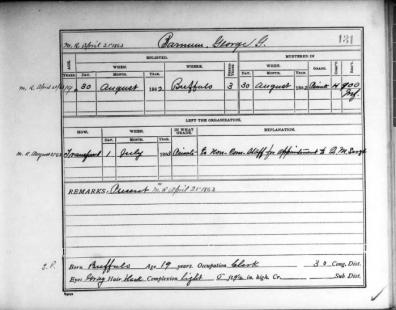 M. R. April 25 1863 Barnum, George G. 131
AGE. ENLISTED. MUSTERED IN
WHEN. WHERE. WHEN. GRADE.
YEARS. DAY. MONTH. YEAR. DAY. MONTH. YEAR.
19 30 August 1862 Buffalo 3 30 August 1862 Private H 100
LEFT THE ORGANIZATION.
HOW. WHEN. IN WHAT GRADE. EXPLANATION.
DAY. MONTH. YEAR.
M. R. August Transferred 1 July 1863 Private to Non. Com. Staff for appointment to Q. M. Sergt
REMARKS: Present M R April 25 1863
Born Buffalo Age 19 years. Occupation Clerk 30 Cong. Dist.
Eyes Gray Hair black Complexion light 5 ft. in. high. Cr. Sub Dist.